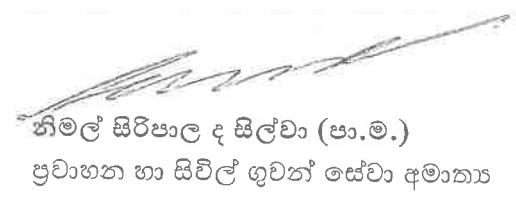 නිමල් සිරිපාල ද සිල්වා (පා.ම.)
ප්‍රවාහන හා සිවිල් ගුවන් සේවා අමාත්‍ය